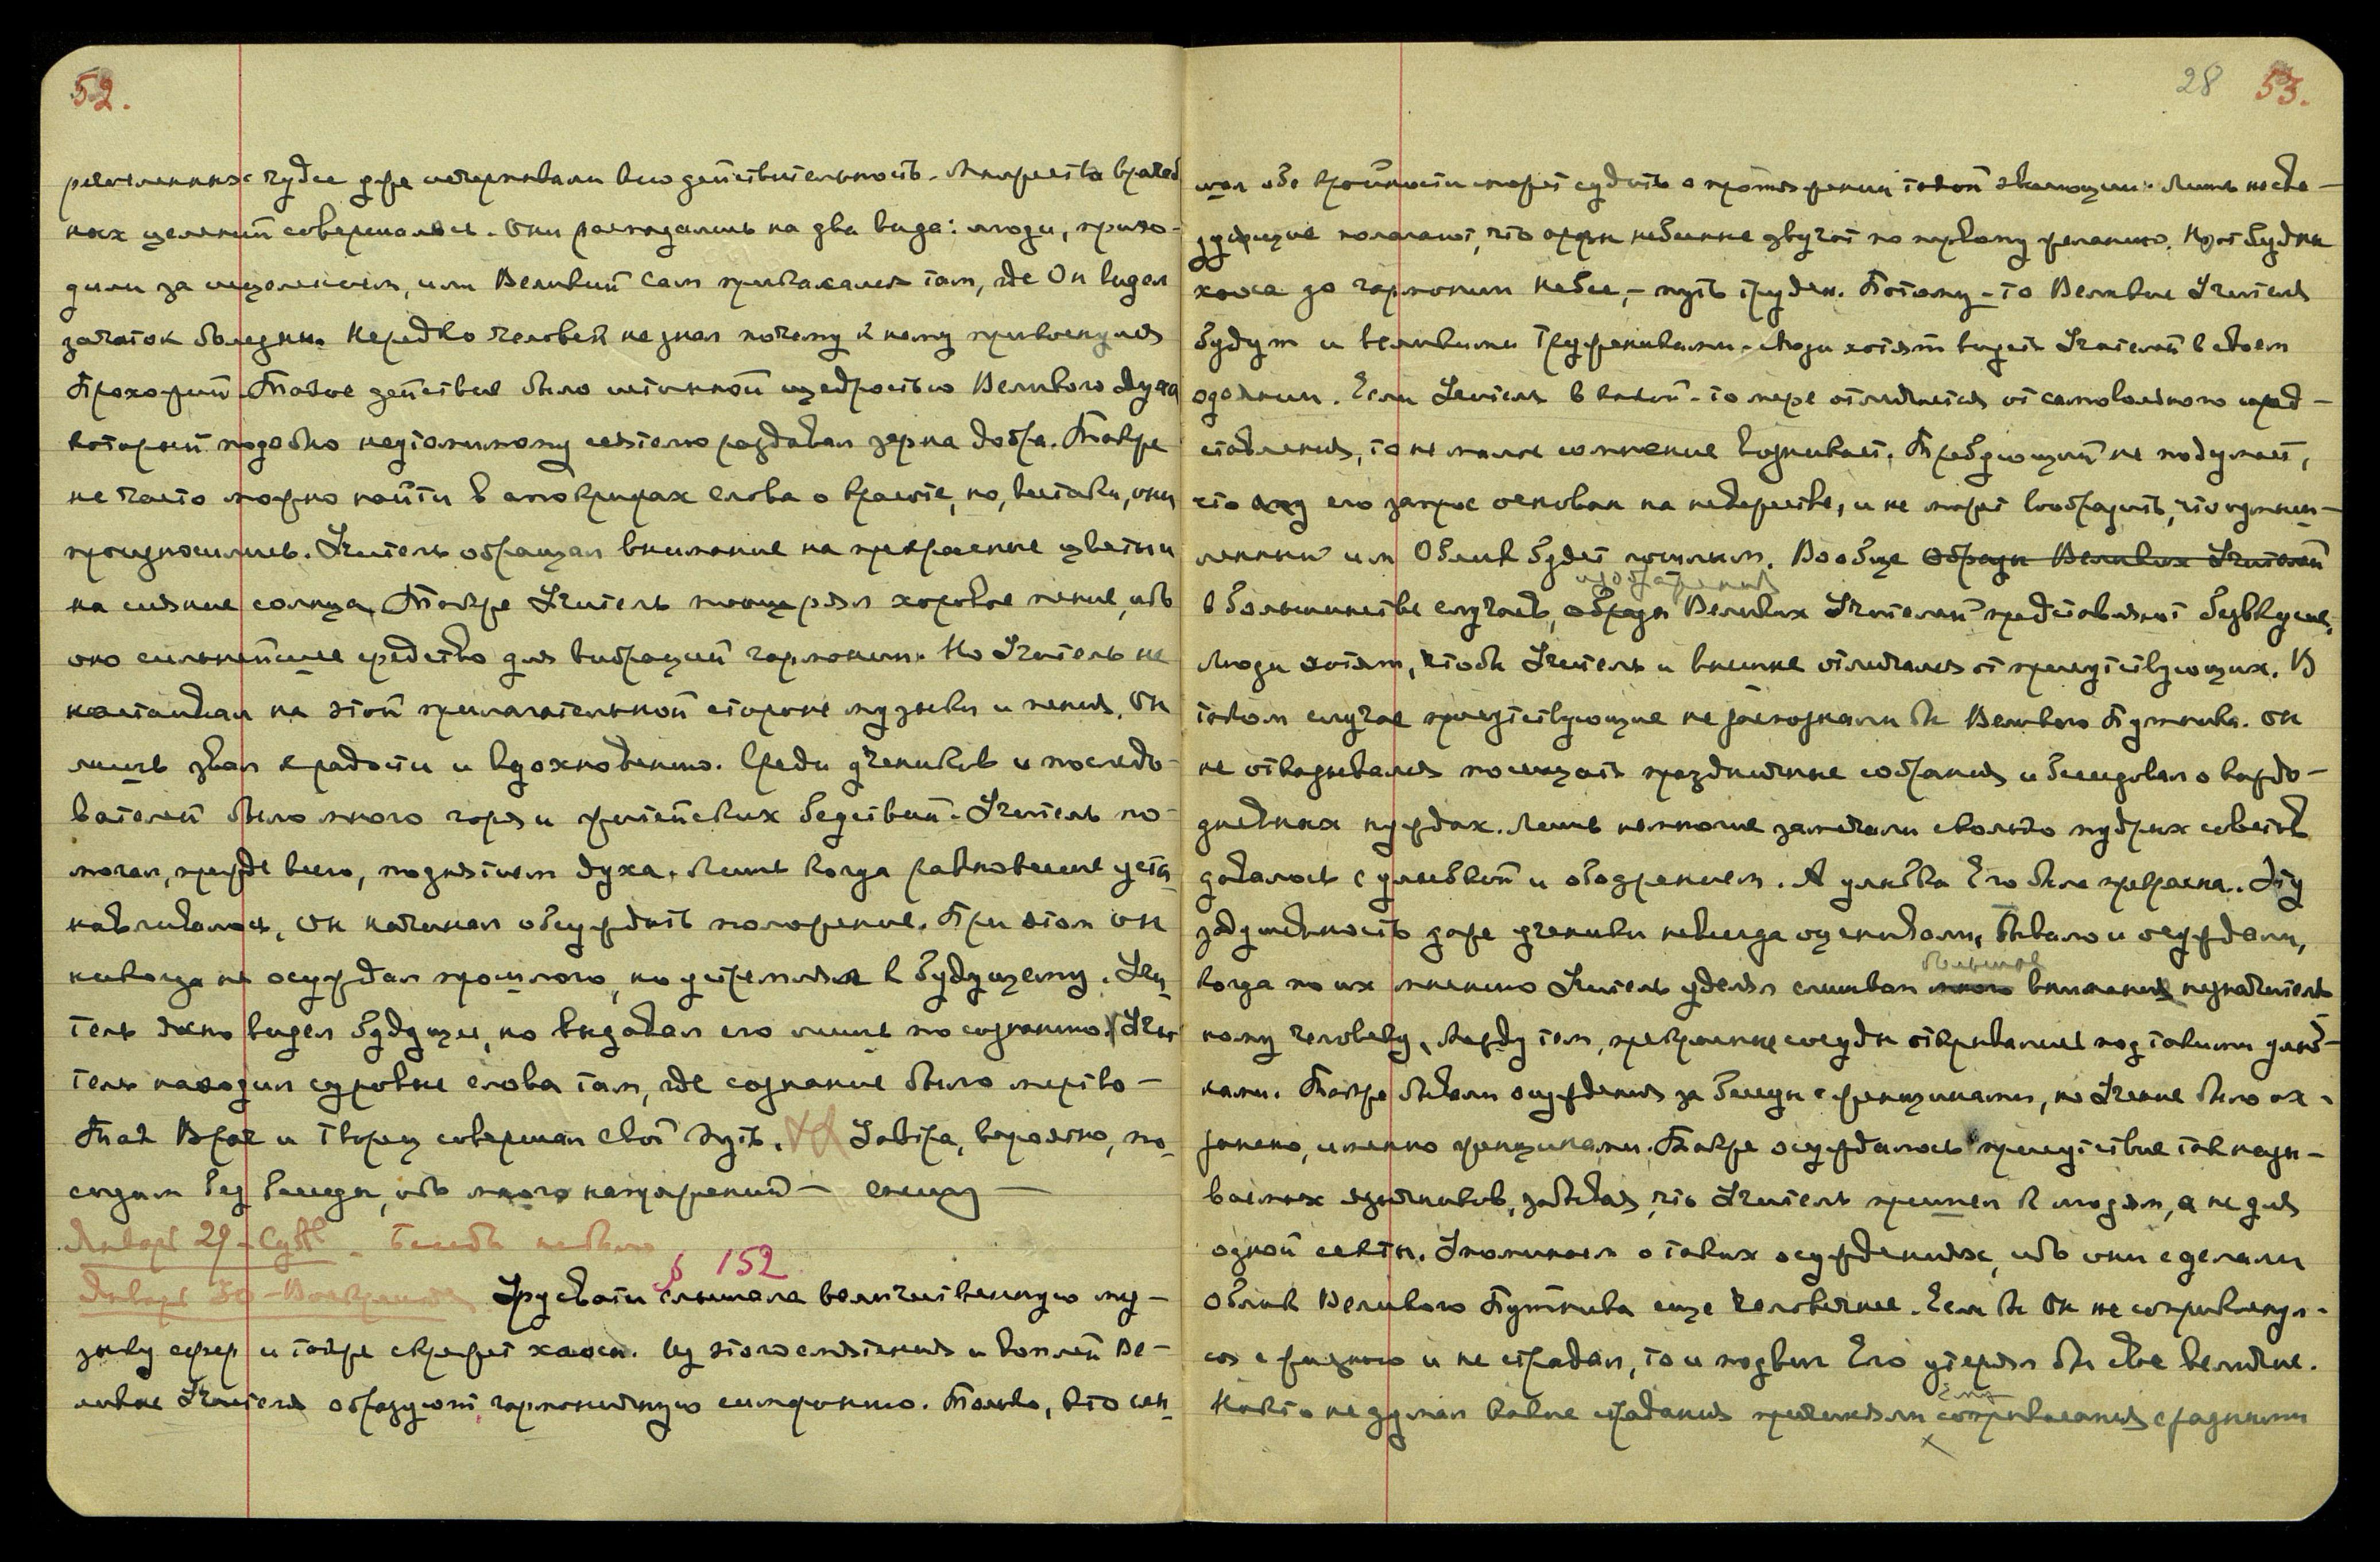 52.
речисленных чудес даже исчерпывали всю действительность. Множества врачеб
ных целений совершалось. Они распадались на два вида: люди, прихо-
дили за исцелением, или Великий Сам прикасался там, где Он видел
зачаток болезни. Нередко человек не знал почему к нему прикоснулся
Прохожий. Такое действие было истинной щедростью Великого Духа
который подобно неутомимому сеятелю раздавал зерна добра. Также
не часто можно найти в апокрифах слова о красоте, но, всетаки, они
произносились. Учитель обращал внимание на прекрасные цветы и
на сияние солнца. Также Учитель поощрял хоровое пение, ибо
оно сильнейшее средство для вибраций гармонии. Но Учитель не
настаивал на этой прилагательной стороне музыки и пения. Он
лишь звал к радости и вдохновению. Среди учеников и последо-
вателей было много горя и житейских бедствий. Учитель по-
могал, прежде всего, поднятием духа. Лишь когда равновесие уста-
навливалось, Он начинал обсуждать положение. При этом Он
никогда не осуждал прошлого, но устремлял к будущему. Учи-
тель ясно видел будущее, но выдавал его лишь по сознанию. Учи-
тель находил суровые слова там, где сознание было мертво -
Так Врач и Творец совершал Свой путь. Завтра, вероятно, по-
сидим без беседы, ибо много напряжений — спешу —
Января 29 - Субб. - Беседы не было
Января 30 - Воскресенье
§ 152
Урусвати слышала величественную му-
зыку сфер и также скрежет хаоса. Из этого смятения и воплей Ве-
ликие Учителя образуют гармоничную симфонию. Только, кто слы-
28 53.
шал обе крайности может судить о протяжении такой эволюции. Лишь несве-
дующие полагают, что арфы небесные звучат по первому желанию. Но от бездны
хаоса до гармонии небес, - путь труден. Потому-то Великие Учителя
будут и великими Тружениками. Люди хотят видеть Учителей в своем
одеянии. Если Учитель в какой-то мере отличается от самовольного пред-
ставления, то не малое сомнение возникает. Требующий не подумает,
что его запрос основан на невежестве, и не может вообразить, что измыш-
ленный им Облик будет пошлым. Вообще образы Великих Учителей
изображения
в большинстве случаев, образы Великих Учителей представляют безвкусие.
Люди хотят, чтобы Учитель и внешне отличался от присутствующих. В
таком случае присутствующие не распознали бы Великого Путника. Он
не отказывался посещать праздничные собрания и беседовал о каждо-
дневных нуждах. Лишь немногие замечали сколько мудрых советов
давалось с улыбкой и ободрением. А улыбка Его была прекрасна. Эту
задушевность даже ученики не всегда оценивали, бывало и осуждали,
большое
когда по их мнению Учитель уделял слишком много внимания незначитель-
ному человеку, Между тем, прекрасные сосуды открывались под такими улыб-
ками. Также бывали осуждения за беседы с женщинами, но Учение было ох-
ранено, именно женщинами. Также осуждалось присутствие так назы-
ваемых язычников, забывая, что Учитель пришел к людям, а не для
одной секты. Упоминаем о таких осуждениях, ибо они сделали
Облик Великого Путника еще человечнее. Если бы Он не соприкоснул-
ся с жизнью и не страдал, то и подвиг Его утерял бы свое величие.
Ему
Никто не думал какие страдания причиняли соприкасания с разными